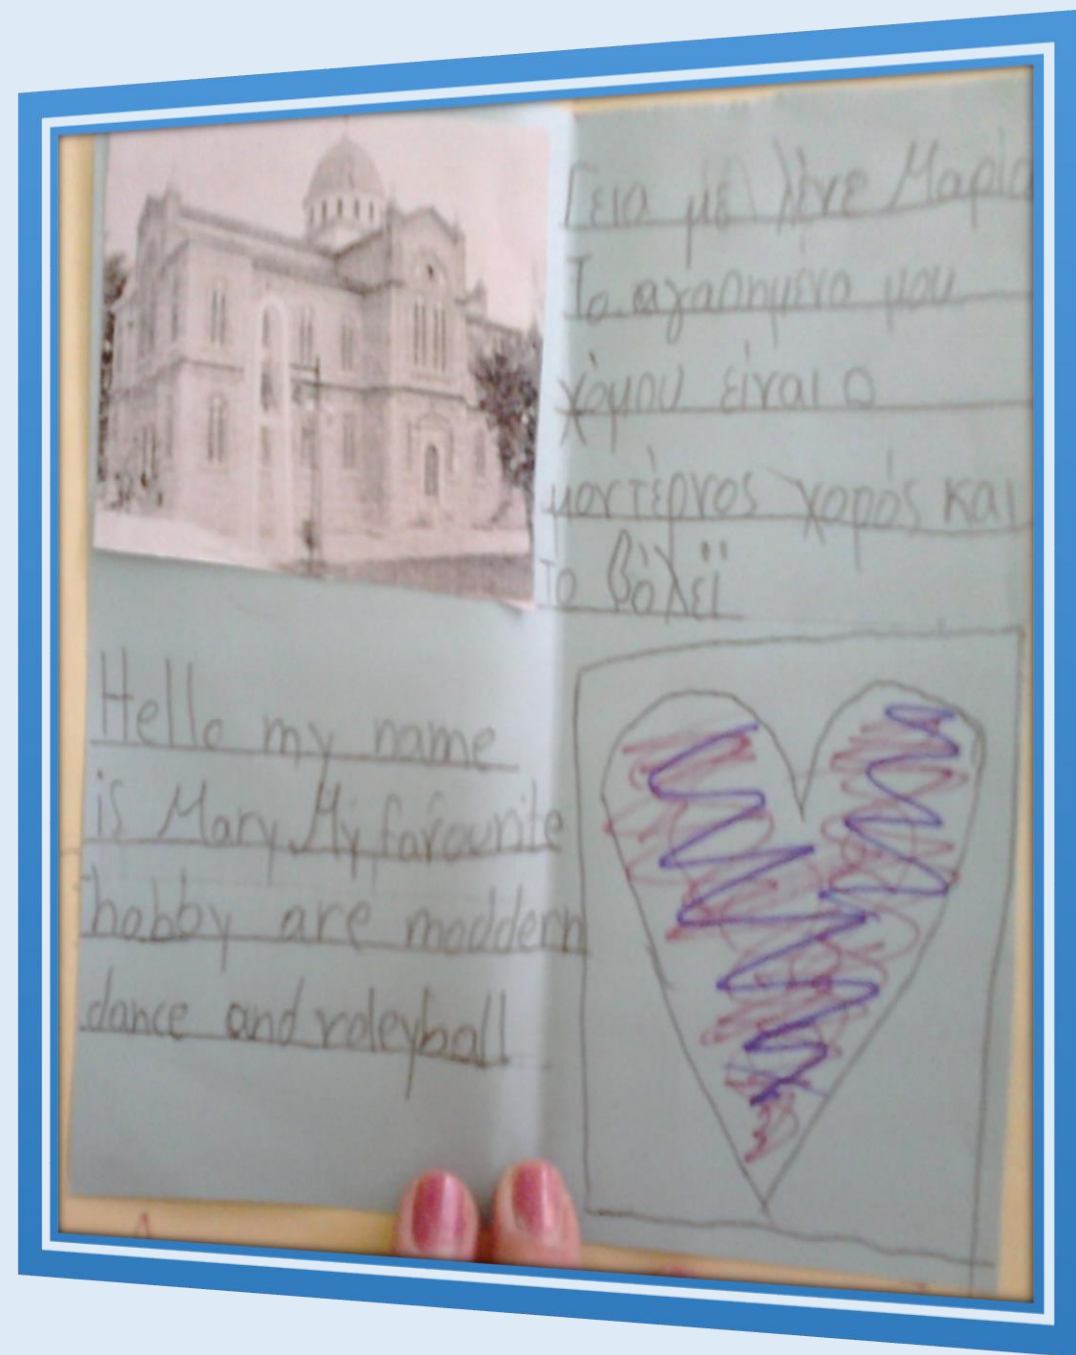 Γεια με λένε Μαρία
Το αγαπημένο μου
χόμπυ είναι ο
μοντέρνος χορός και
το βόλεϊ
Hello my name
is Mary. My favourite
hobby are moddern
dance and voleyball